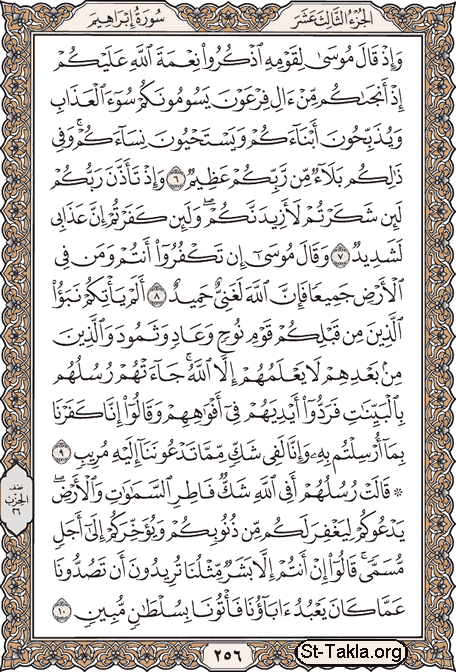 الجزء الثالث عشر
سورة إبراهيم
وَإِذْ قَالَ مُوسَىٰ لِقَوْمِهِ ٱذْكُرُوا۟ نِعْمَةَ ٱللَّهِ عَلَيْكُمْ
إِذْ أَنجَىٰكُم مِّنْ ءَالِ فِرْعَوْنَ يَسُومُونَكُمْ سُوٓءَ ٱلْعَذَابِ
وَيُذَبِّحُونَ أَبْنَآءَكُمْ وَيَسْتَحْيُونَ نِسَآءَكُمْ ۚ وَفِى
ذَٰلِكُم بَلَآءٌ مِّن رَّبِّكُمْ عَظِيمٌ ٦ وَإِذْ تَأَذَّنَ رَبُّكُمْ
لَئِن شَكَرْتُمْ لَأَزِيدَنَّكُمْ ۖ وَلَئِن كَفَرْتُمْ إِنَّ عَذَابِى
لَشَدِيدٌ ٧ وَقَالَ مُوسَىٰٓ إِن تَكْفُرُوٓا۟ أَنتُمْ وَمَن فِى
ٱلْأَرْضِ جَمِيعًا فَإِنَّ ٱللَّهَ لَغَنِىٌّ حَمِيدٌ ٨ أَلَمْ يَأْتِكُمْ نَبَؤُا۟
ٱلَّذِينَ مِن قَبْلِكُمْ قَوْمِ نُوحٍ وَعَادٍ وَثَمُودَ وَٱلَّذِينَ
مِنۢ بَعْدِهِمْ لَا يَعْلَمُهُمْ إِلَّا ٱللَّهُ ۚ جَآءَتْهُمْ رُسُلُهُم
بِٱلْبَيِّنَٰتِ فَرَدُّوٓا۟ أَيْدِيَهُمْ فِىٓ أَفْوَٰهِهِمْ وَقَالُوٓا۟ إِنَّا كَفَرْنَا
بِمَآ أُرْسِلْتُم بِهِۦ وَإِنَّا لَفِى شَكٍّ مِّمَّا تَدْعُونَنَآ إِلَيْهِ مُرِيبٍ ٩
۞ قَالَتْ رُسُلُهُمْ أَفِى ٱللَّهِ شَكٌّ فَاطِرِ ٱلسَّمَٰوَٰتِ وَٱلْأَرْضِ ۖ
يَدْعُوكُمْ لِيَغْفِرَ لَكُم مِّن ذُنُوبِكُمْ وَيُؤَخِّرَكُمْ إِلَىٰٓ أَجَلٍ
مُّسَمًّى ۚ قَالُوٓا۟ إِنْ أَنتُمْ إِلَّا بَشَرٌ مِّثْلُنَا تُرِيدُونَ أَن تَصُدُّونَا
عَمَّا كَانَ يَعْبُدُ ءَابَآؤُنَا فَأْتُونَا بِسُلْطَٰنٍ مُّبِينٍ ١٠
نصف
الحزب
٢٦
٢٥٦
St-Takla.org